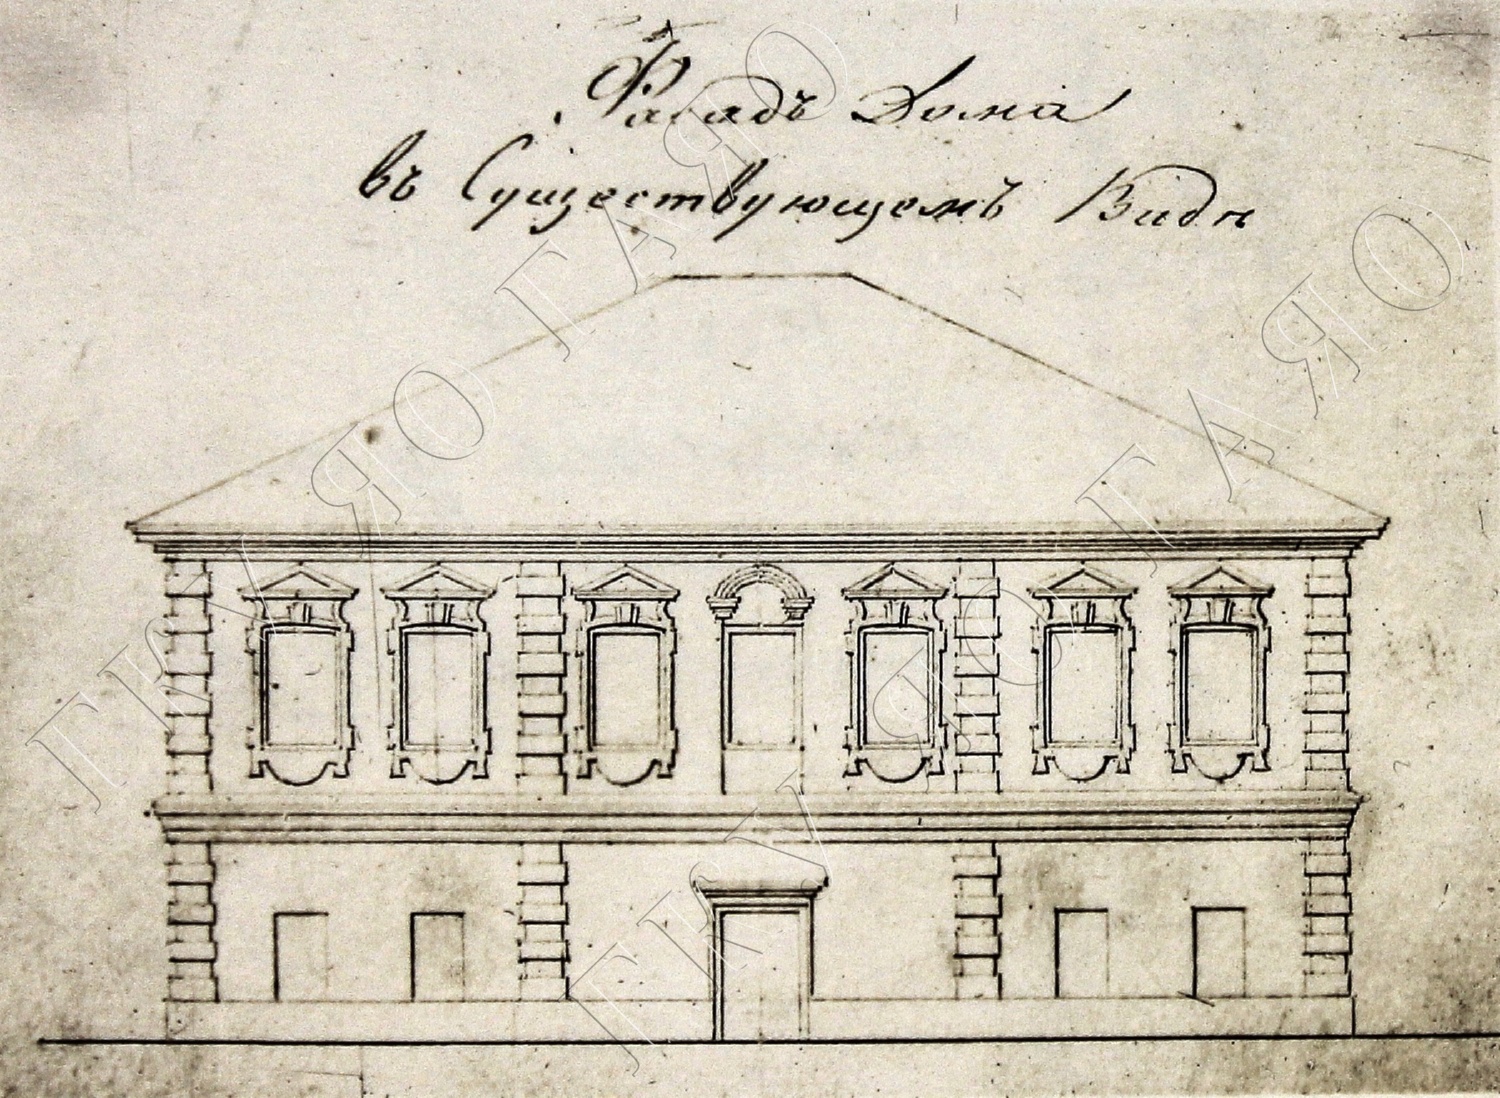 Фасадъ Дома
въ Существующемъ Видѣ
ГКУ ЯО ГАЯО
ГКУ ЯО ГАЯО